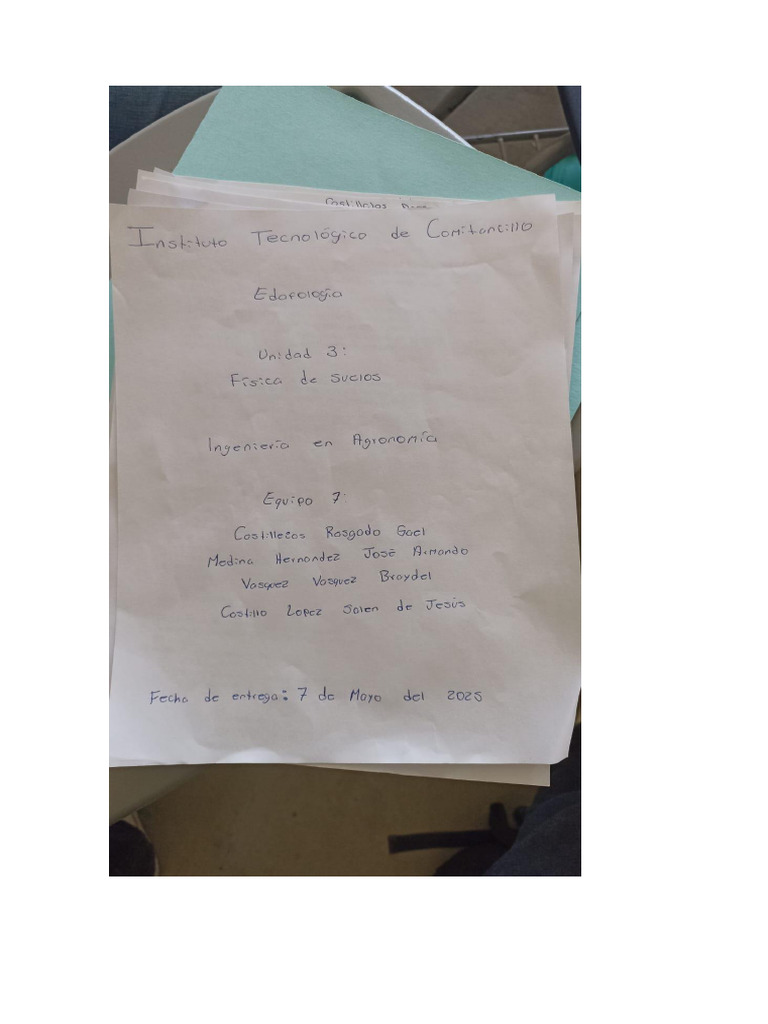 Castillejos
Instituto Tecnológico de Comitancillo
Edafología
Unidad 3:
Física de suelos
Ingeniería en Agronomía
Equipo 7:
Castillejos Rasgado Gael
Medina Hernandez José Armando
Vasquez Vasquez Braydel
Castillo Lopez Salen de Jesús
Fecha de entrega: 7 de Mayo del 2025